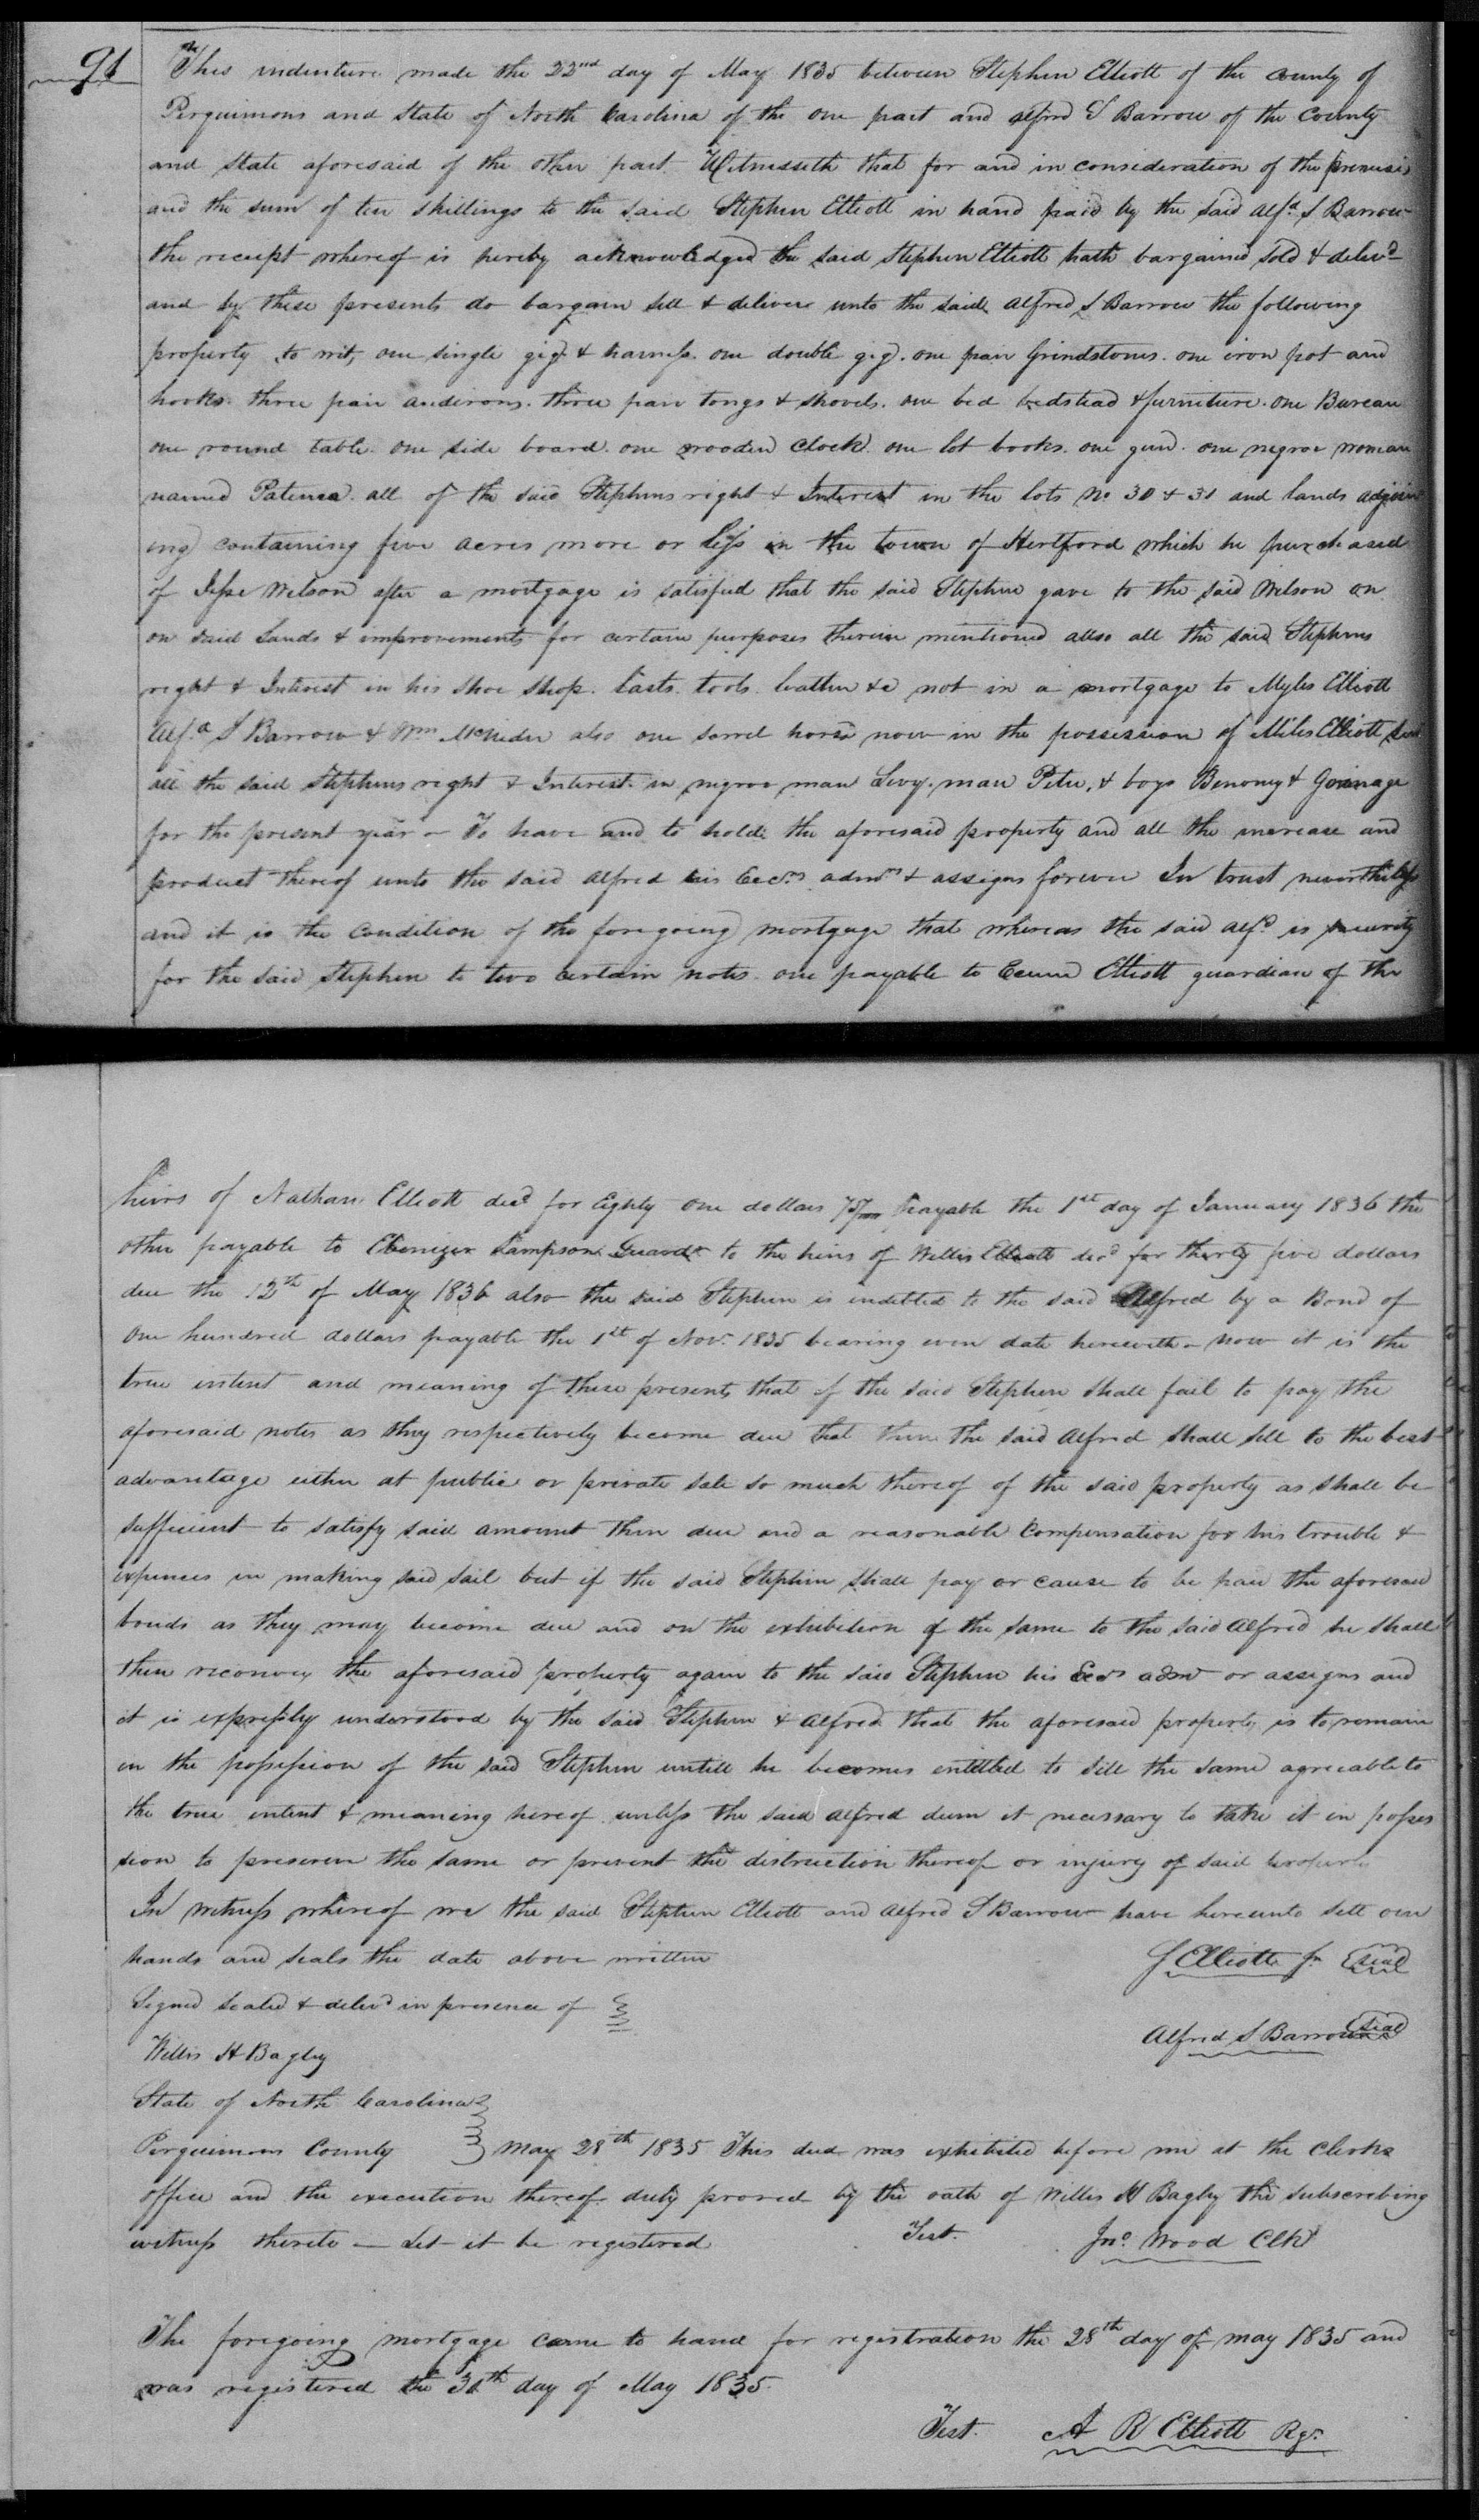 91
This indenture made the 22nd day of May 1835 between Stephen Elliott of the county of
Perquimons and State of North Carolina of the one part and alfred S Barrow of the County
and State aforesaid of the other part Witnesseth that for and in consideration of the premises
and the sum of ten shillings to the said Stephen Elliott in hand paid by the said Alfd S Barrow
the receipt whereof is hereby acknowledged the said Stephen Elliott hath bargained sold & delivd
and by these presents do bargain sell & deliver unto the said Alfred S Barrow the following
property to wit, one single gig & harness. one double gig. one pair Grindstones. one iron pot and
hooks. three pair andirons. three pair tongs & shovels. one bed bedstead & furniture. one Bureau
one round table. one side board. one wooden Clock. one lot books. one gun. one negroe woman
named Patience. all of the said Stephens right & Interest in the lots No 30 & 31 and lands adjoin
ing containing five acres more or less in the town of Hertford which he purchased
of Jesse Wilson after a mortgage is satisfied that the said Stephen gave to the said Wilson on
on said Lands & improvements for certain purposes therein mentioned allso all the said Stephens
right & Interest in his Shoe Shop. Lasts. tools. leather &c not in a mortgage to Myles Elliott
Alfd S Barrow & Wm McNider also one sorrel horse now in the possession of Miles Elliott
all the said Stephens right & Interest in negroe man Levy. man Peter, & boys Benoney & Gorinage
for the present year - To have and to hold the aforesaid property and all the increase and
product thereof unto the said Alfred his Excrs admrs & assigns forever In trust nevertheless
and it is the Condition of the foregoing mortgage that whereas the said Alfd is security
for the said Stephen to two certain notes. one payable to Elliott guardian of the
heirs of Nathan Elliott decd for Eighty one dollars 75/100 payable the 1st day of January 1836 the
other payable to Ebenezer Sampson Guardn to the heirs of Willis Elliott decd for thirty five dollars
due the 12th of May 1836 also the said Stephen is indebted to the said Alfred by a Bond of
One hundred dollars payable the 1st of Novr 1835 bearing even date herewith - now it is the
true intent and meaning of these presents that if the said Stephen shall fail to pay the
aforesaid notes as they respectively become due that then the said Alfred shall sell to the best
advantage either at public or private sale so much thereof of the said property as shall be
sufficient to satisfy said amount then due and a reasonable Compensation for his trouble &
expences in making said sail but if the said Stephen shall pay or cause to be paid the aforesaid
bonds as they may become due and on the exhibition of the same to the said Alfred he shall
then reconvey the aforesaid property again to the said Stephen his Exrs admr or assigns and
it is expressly understood by the said Stephen & Alfred that the aforesaid property is to remain
in the possession of the said Stephen untill he becomes intitled to sell the same agreeable to
the true intent & meaning hereof unless the said Alfred deem it necessary to take it in posses
sion to preserve the same or prevent the distruction thereof or injury of said property
In witness whereof we the said Stephen Elliott and Alfred S Barrow have hereunto sett our
hands and seals the date above written S Elliott Jr Seal
Signed sealed & delivd in presence of
Alfred S Barrow Seal
Willis H Bagley
State of North Carolina
Perquimons County May 28th 1835 This deed was exhibited before me at the Clerks
office and the execution thereof duly proved by the oath of Willis H Bagley the subscribing
witness thereto — Let it be registered Test. Jno Wood Clk
The foregoing mortgage came to hand for registration the 28th day of may 1835 and
was registered the 31th day of May 1835.
Test. A R Elliott Rgr